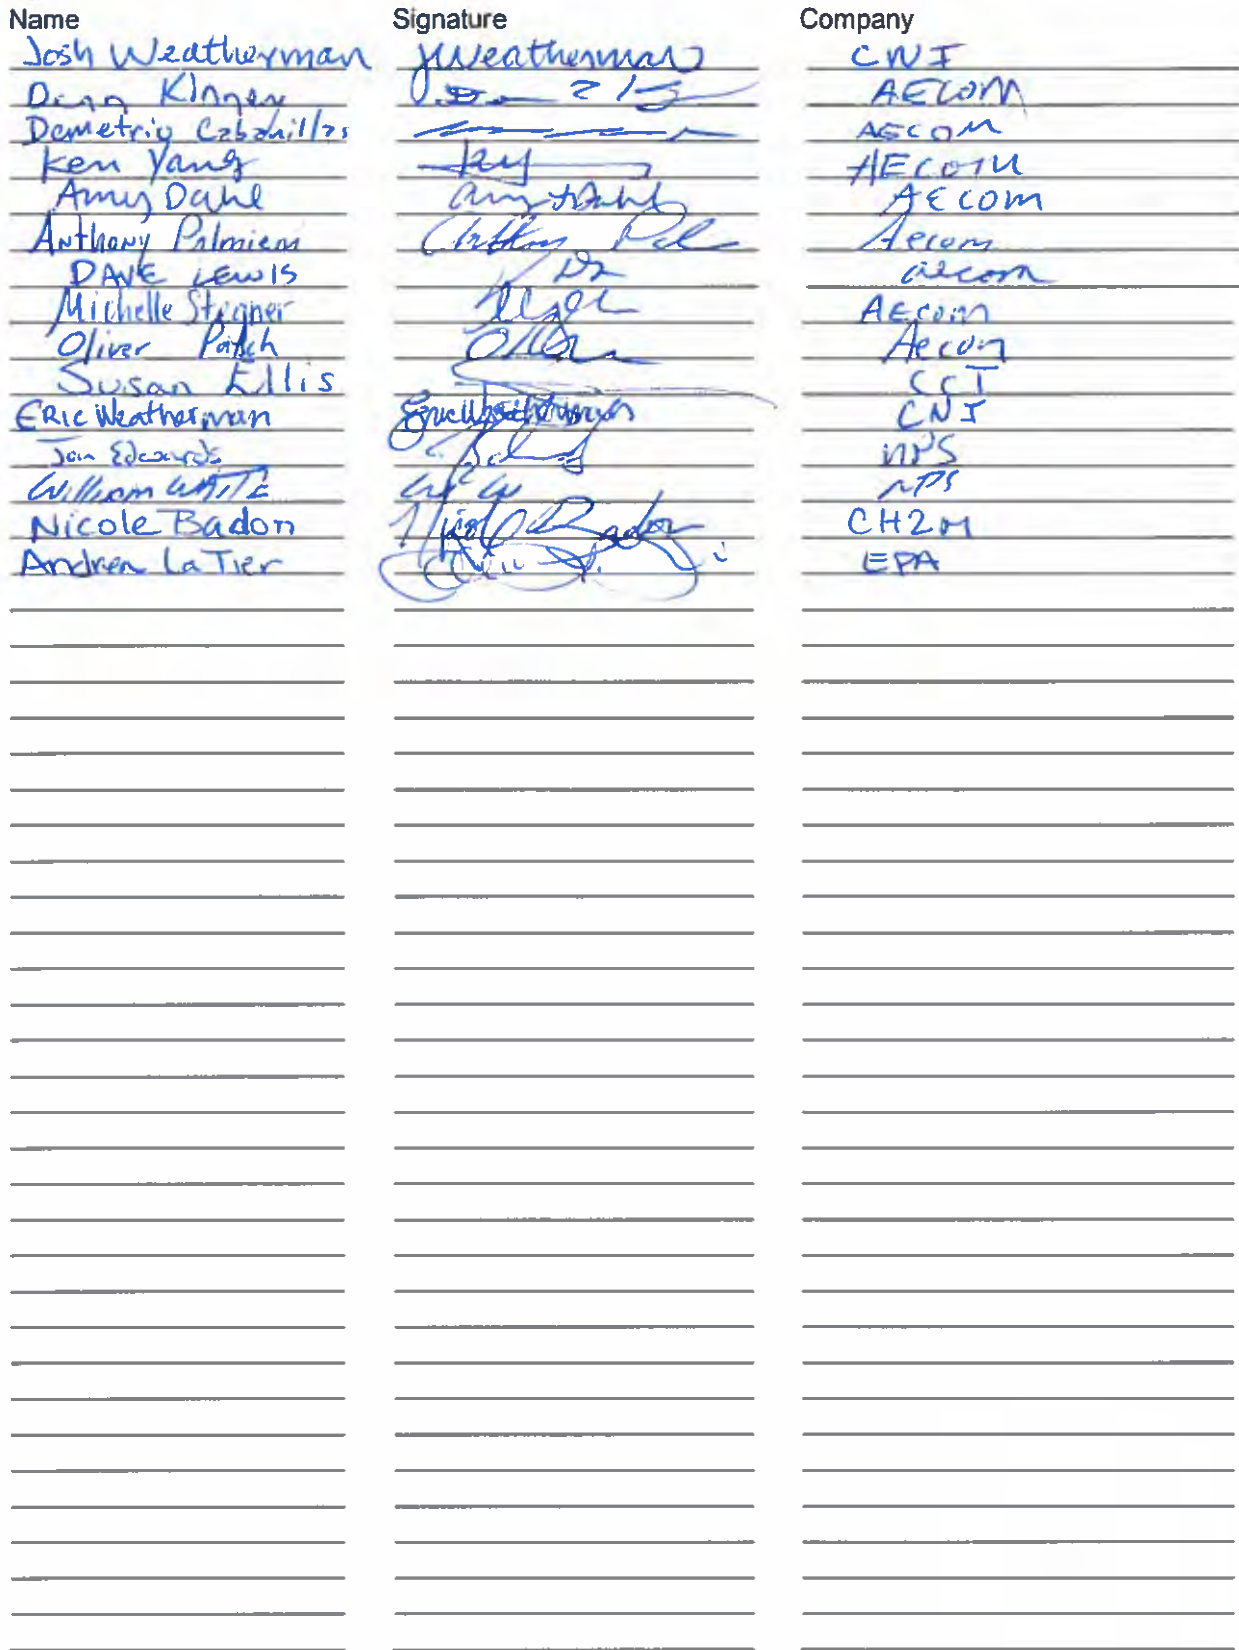 Name Signature Company
Josh Weatherman JWeatherman CNI
AECOM
Demetrio Cabanillas AECOM
Ken Yang AECOM
Amy Dahl Amy Dahl AECOM
Anthony Palmieri Aecom
DAVE LEWIS aecom
Michelle Stegner AECOM
Oliver Aecom
Susan Ellis CCI
ERIC Weatherman Eric Weatherman CNI
Jon Edwards NPS
William WHITE NPS
Nicole Badon Nicole Badon CH2M
Andrea LaTier EPA